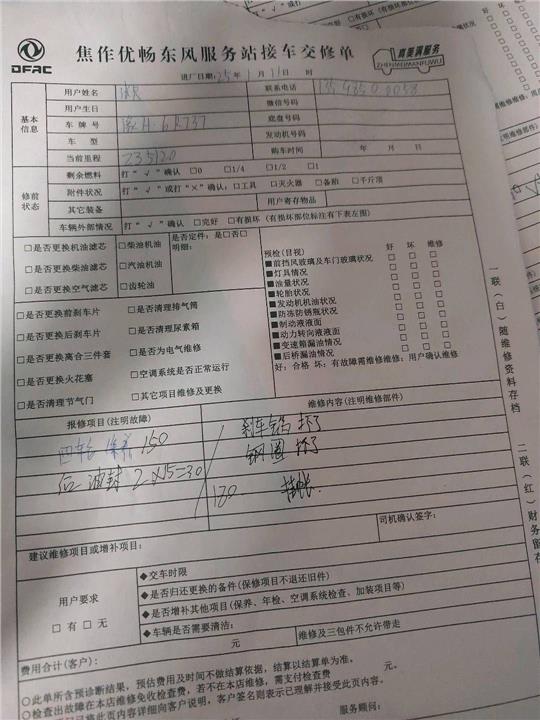 DFAC
焦作优畅东风服务站接车交修单
真美满服务
ZHENMEIMANFUWU
进厂日期:25年1月11日 时
基本信息
用户姓名 联系电话
用户生日 微信号码
车牌号 豫H·6R737 底盘号码
车型 发动机号码
当前里程 235120 购车时间 年 月 日
修前状态
剩余燃料 打“√”确认 □0 □1/4 □1/2 □1
附件状况 打“√”或打“×”确认:□工具 □灭火器 □备胎 □千斤顶
其它装备 用户寄存物品
车辆外部情况 打“√”确认 □完好 □有损坏(有损坏部位标注有下表左图)
□是否更换机油滤芯 □柴油机油 是否定件:是□否□
明细:
□是否更换柴油滤芯 □汽油机油
□是否更换空气滤芯 □齿轮油
□是否更换前刹车片 □是否清理排气筒
□是否更换后刹车片 □是否清理尿素箱
□是否更换离合三件套 □是否为电气维修
□是否更换火花塞 □空调系统是否正常运行
□是否清理节气门 □其它项目维修及更换
预检(目视) 好 坏 维修
■前挡风玻璃及车门玻璃状况 □ □ □
■灯具情况 □ □ □
■油量状况 □ □ □
■轮胎状况 □ □ □
■发动机机油状况 □ □ □
■防冻防锈瓶状况 □ □ □
■制动液液面 □ □ □
■动力转向液液面 □ □ □
■变速箱漏油情况 □ □ □
■后桥漏油情况 □ □ □
好:合格 坏:有故障需维修维修:用户确认维修
报修项目(注明故障) 维修内容(注明维修部件)
四轮保养 150 刹车锅 坏了
钢圈 坏了
后油封 2×15=30
180 挂帐
司机确认签字:
建议维修项目或增补项目:
用户要求
□有 □无
◆交车时限
◆是否归还更换的备件(保修项目不退还旧件)
◆是否增补其他项目(保养、年检、空调系统检查、加装项目等)
◆车辆是否需要清洁:
费用合计(客户): 元 维修及三包件不允许带走
○此单所含预诊断结果,预估费用及时间不做结算依据,结算以结算单为准。
○检查出故障在本店维修免收检查费,若不在本店维修,需支付检查费 元。
已将此页内容详细向客户说明,客户签名则表示已理解并接受此页内容。
服务顾问:
一联(白)随维修资料存档
二联(红)财务留存